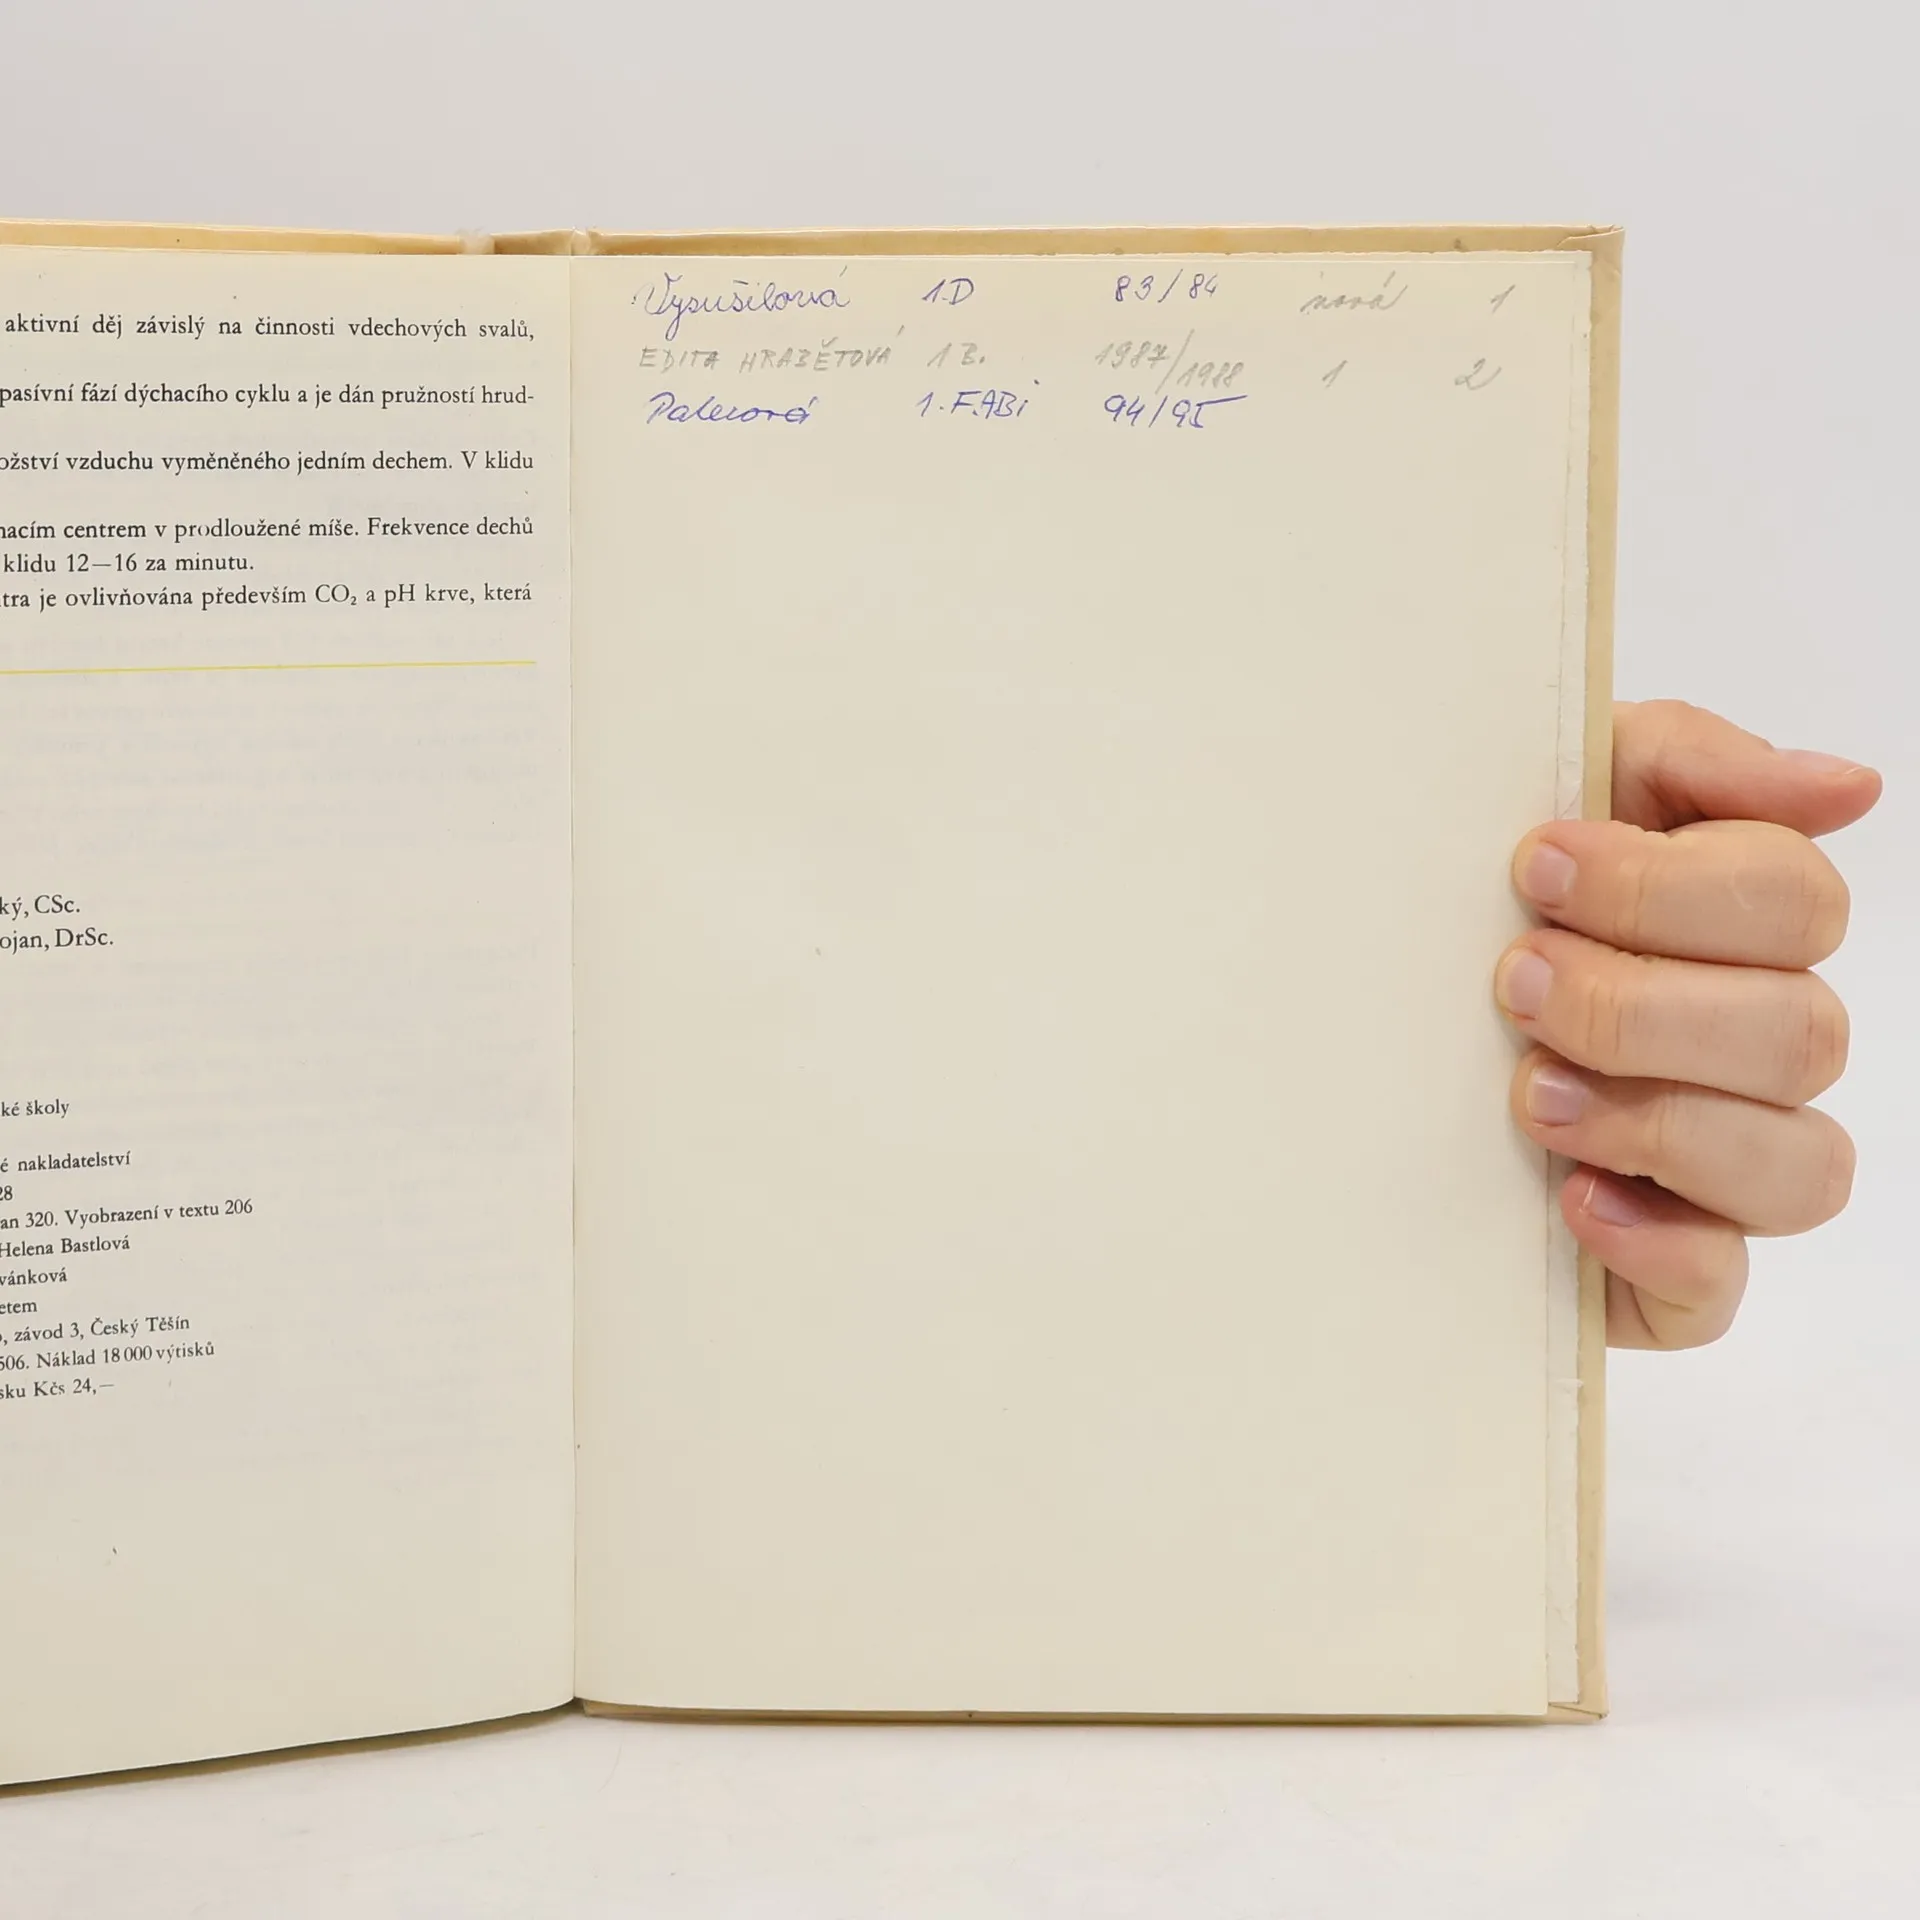 aktivní děj závislý na činnosti vdechových svalů,
pasívní fází dýchacího cyklu a je dán pružností hrud-
ožství vzduchu vyměněného jedním dechem. V klidu
nacím centrem v prodloužené míše. Frekvence dechů
klidu 12—16 za minutu.
tra je ovlivňována především CO₂ a pH krve, která
ký, CSc.
ojan, DrSc.
ké školy
é nakladatelství
28
an 320. Vyobrazení v textu 206
Helena Bastlová
vánková
etem
, závod 3, Český Těšín
506. Náklad 18 000 výtisků
sku Kčs 24,—
Vysušilová 1.D 83/84 nová 1
EDITA HRABĚTOVÁ 1B. 1987/1988 1 2
1.F.ABi 94/95